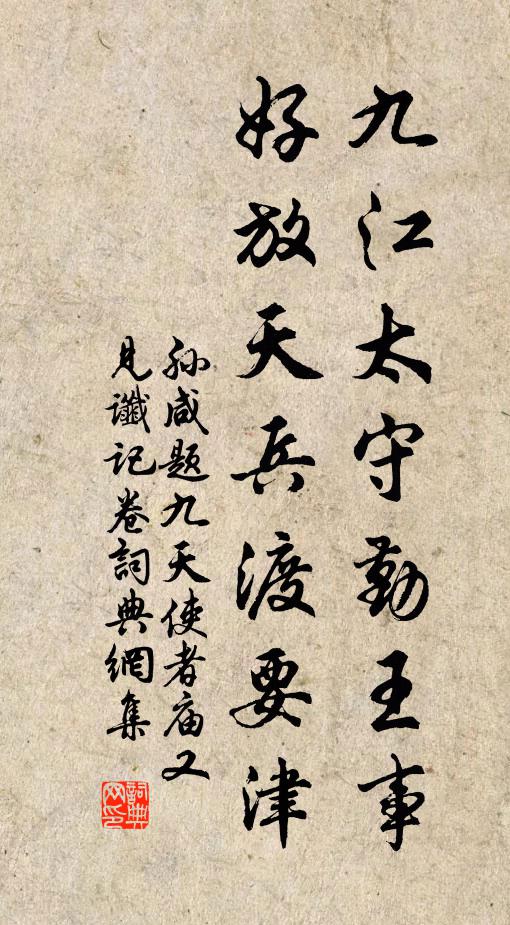 九江太守勤王事
好放天兵渡要津
孙咸题九天使者庙又
見讖記卷詞典網集
詞典
网印